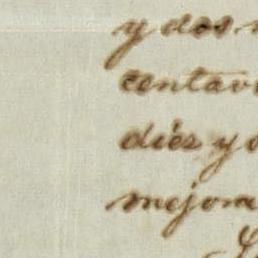 y dos
centav
diés y
mejora